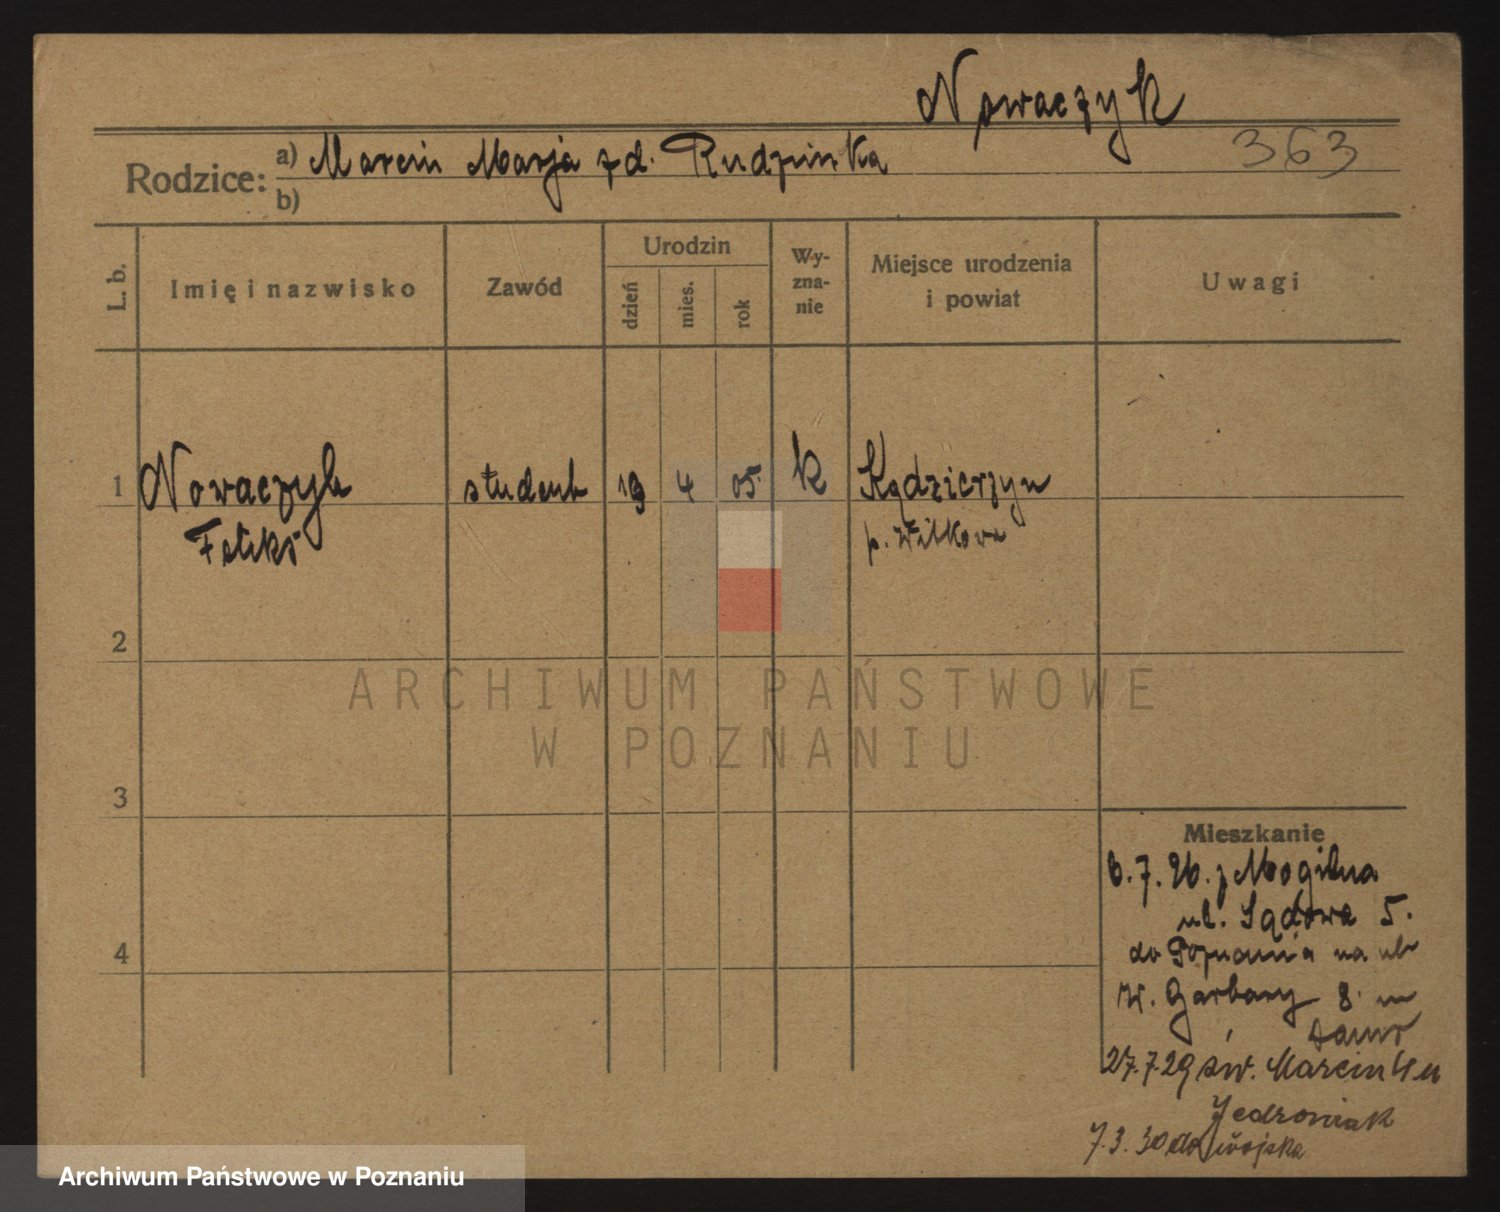 Nowaczyk
363
Rodzice: a) Marcin Marja z d. Rudzinka
b)
L. b.
Imię i nazwisko
Zawód
Urodzin
dzień
mies.
rok
Wy-
zna-
nie
Miejsce urodzenia
i powiat
Uwagi
1 Nowaczyk student 19 4 05. k Kędzierzyn
Feliks p. Witkowo
2
3
4
Mieszkanie
z Mogilna
ul. Sądowa 5.
do Poznania na ul
W. Garbary 8. m
27.7.29 św. Marcin
Jedroniak
7.3.30 do wojska
ARCHIWUM PAŃSTWOWE
W POZNANIU
Archiwum Państwowe w Poznaniu